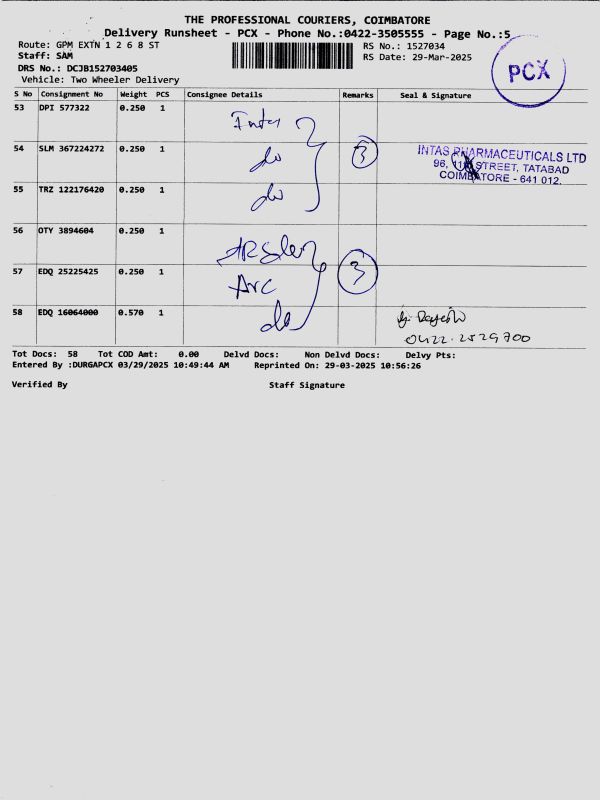 THE PROFESSIONAL COURIERS, COIMBATORE
Delivery Runsheet - PCX - Phone No.:0422-3505555 - Page No.:5
Route: GPM EXTN 1 2 6 8 ST
RS No.: 1527034
Staff: SAM
RS Date: 29-Mar-2025
DRS No.: DCJB152703405
PCX
Vehicle: Two Wheeler Delivery
S No Consignment No Weight PCS Consignee Details Remarks Seal & Signature
53 DPI 577322 0.250 1 Intas
54 SLM 367224272 0.250 1 do 3
INTAS PHARMACEUTICALS LTD
96, 11th STREET, TATABAD
COIMBATORE - 641 012.
55 TRZ 122176420 0.250 1 do
56 OTY 3894604 0.250 1
57 EDQ 25225425 0.250 1 Arc 3
58 EDQ 16064000 0.570 1 do
0422-2529700
Tot Docs: 58 Tot COD Amt: 0.00 Delvd Docs: Non Delvd Docs: Delvy Pts:
Entered By :DURGAPCX 03/29/2025 10:49:44 AM Reprinted On: 29-03-2025 10:56:26
Verified By Staff Signature